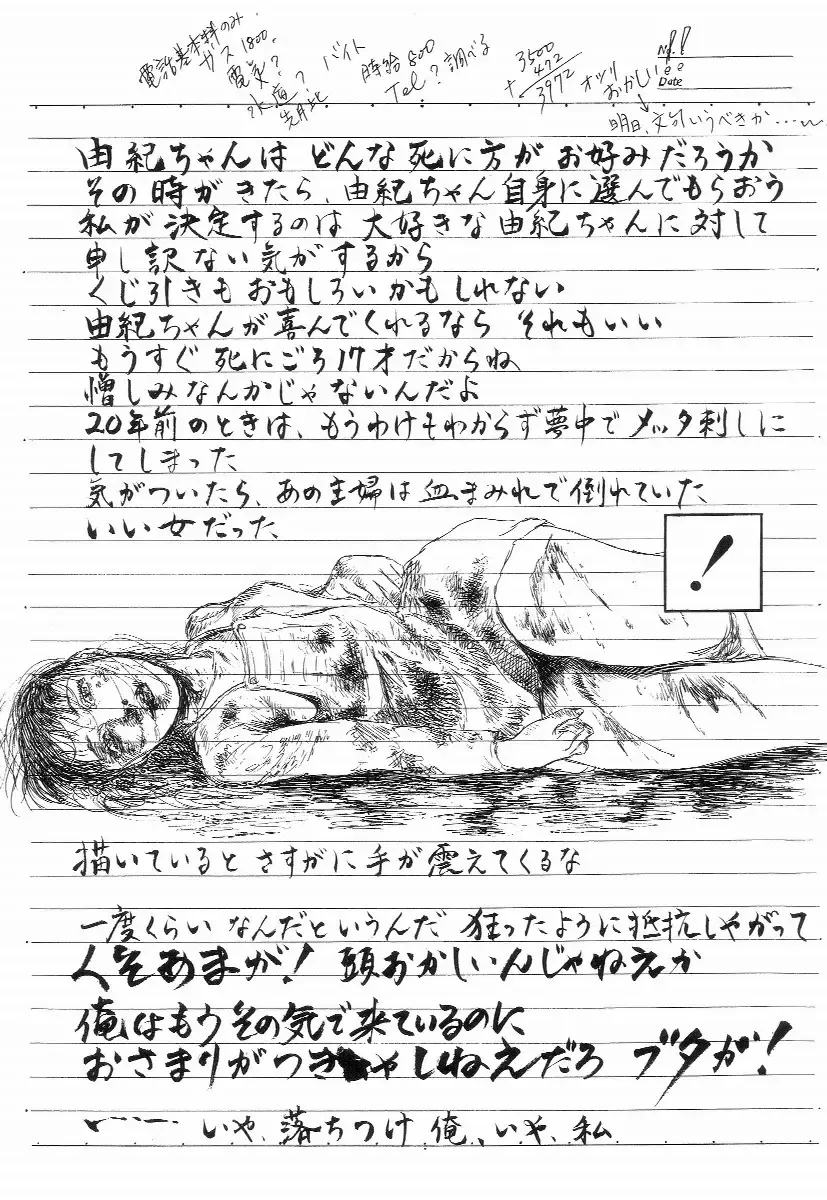 電話基本料のみ.
ガス 1800.
電気?
水道?
先月比
バイト
時給 800
Tel? 調べる
3500
+ 472
3972
オツリ
おかしい!!
No.
Date
明日、文句いうべきか……
由紀ちゃんは どんな死に方が お好みだろうか
その時がきたら、由紀ちゃん自身に選んでもらおう
私が決定するのは 大好きな由紀ちゃんに対して
申し訳ない気がするから
くじ引きもおもしろいかもしれない
由紀ちゃんが喜んでくれるなら それもいい
もうすぐ 死にごろ17才だからね
憎しみなんかじゃないんだよ
20年前のときは、もうわけもわからず夢中で メッタ刺しに
してしまった
気がついたら、あの主婦は血まみれで倒れていた
いい女だった
!
描いていると さすがに手が震えてくるな
一度くらい なんだというんだ 狂ったように抵抗しやがって
くそあまが! 頭おかしいんじゃねえか
俺はもうその気で来ているのに
おさまりがつきゃしねえだろ ブタが!
……いや、落ちつけ 俺、いや、私